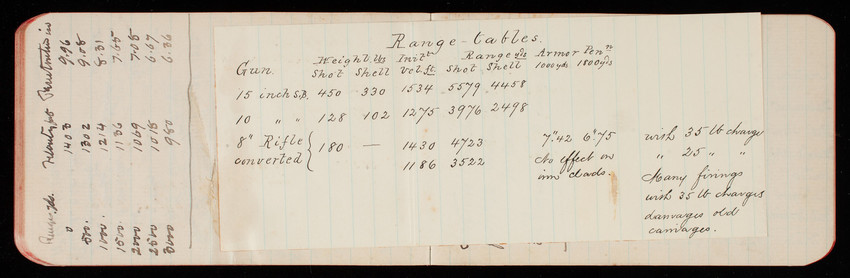 Range-tables.
Gun. Weight lbs Shot Shell Initl Vel. ft. Range yds Shot Shell Armor Penn 1000 yds 1800 yds
15 inch S.B. 450 330 1534 5579 4458
10 " " 128 102 1275 3976 2498
8" Rifle converted { 180 — 1430 4723 7".42 6".75 with 35 lb charge
1186 3522 No effect on iron clads. " 25 " "
Many firings
with 35 lb charges
damages old
carriages.
Range yds. Penetration in
0 1403 9.96
500. 1302 9.08
1000. 1214 8.31
1500. 1136 7.65
2000 1069 7.08
2500 1018 6.67
3000 980 6.36